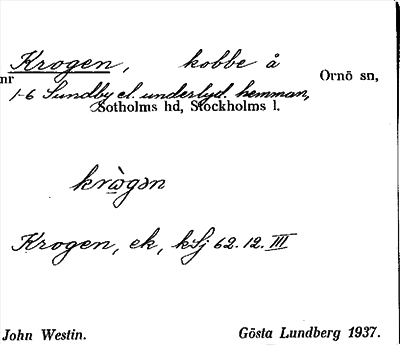 Krogen, kobbe å
nr Ornö sn,
1-6 Sundby el. underlyd. hemman,
Sotholms hd, Stockholms l.
krògən
Krogen, ek, kSj 62.12.III
John Westin. Gösta Lundberg 1937.